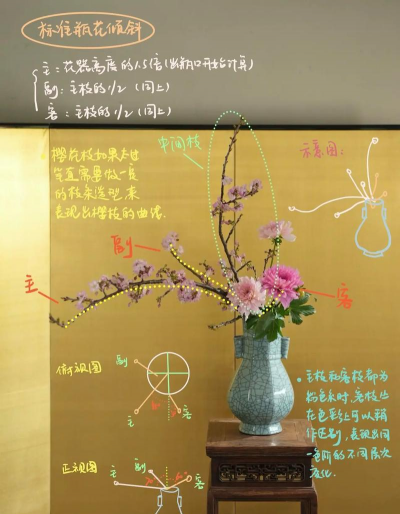 标准瓶花倾斜
主：花器高度的1.5倍（从瓶口开始计算）
副：主枝的1/2（同上）
客：主枝的1/2（同上）
樱花枝如果太过
笔直需要做一定
的枝条造型，来
表现出樱枝的曲线.
中间枝
示意图：
副
主
客
俯视图
副
主
客
正视图
主
副
客
主枝和客枝都为
粉色系时，客枝在
在色彩上可以稍
作区别，表现出同
一色阶的不同层次
变化.